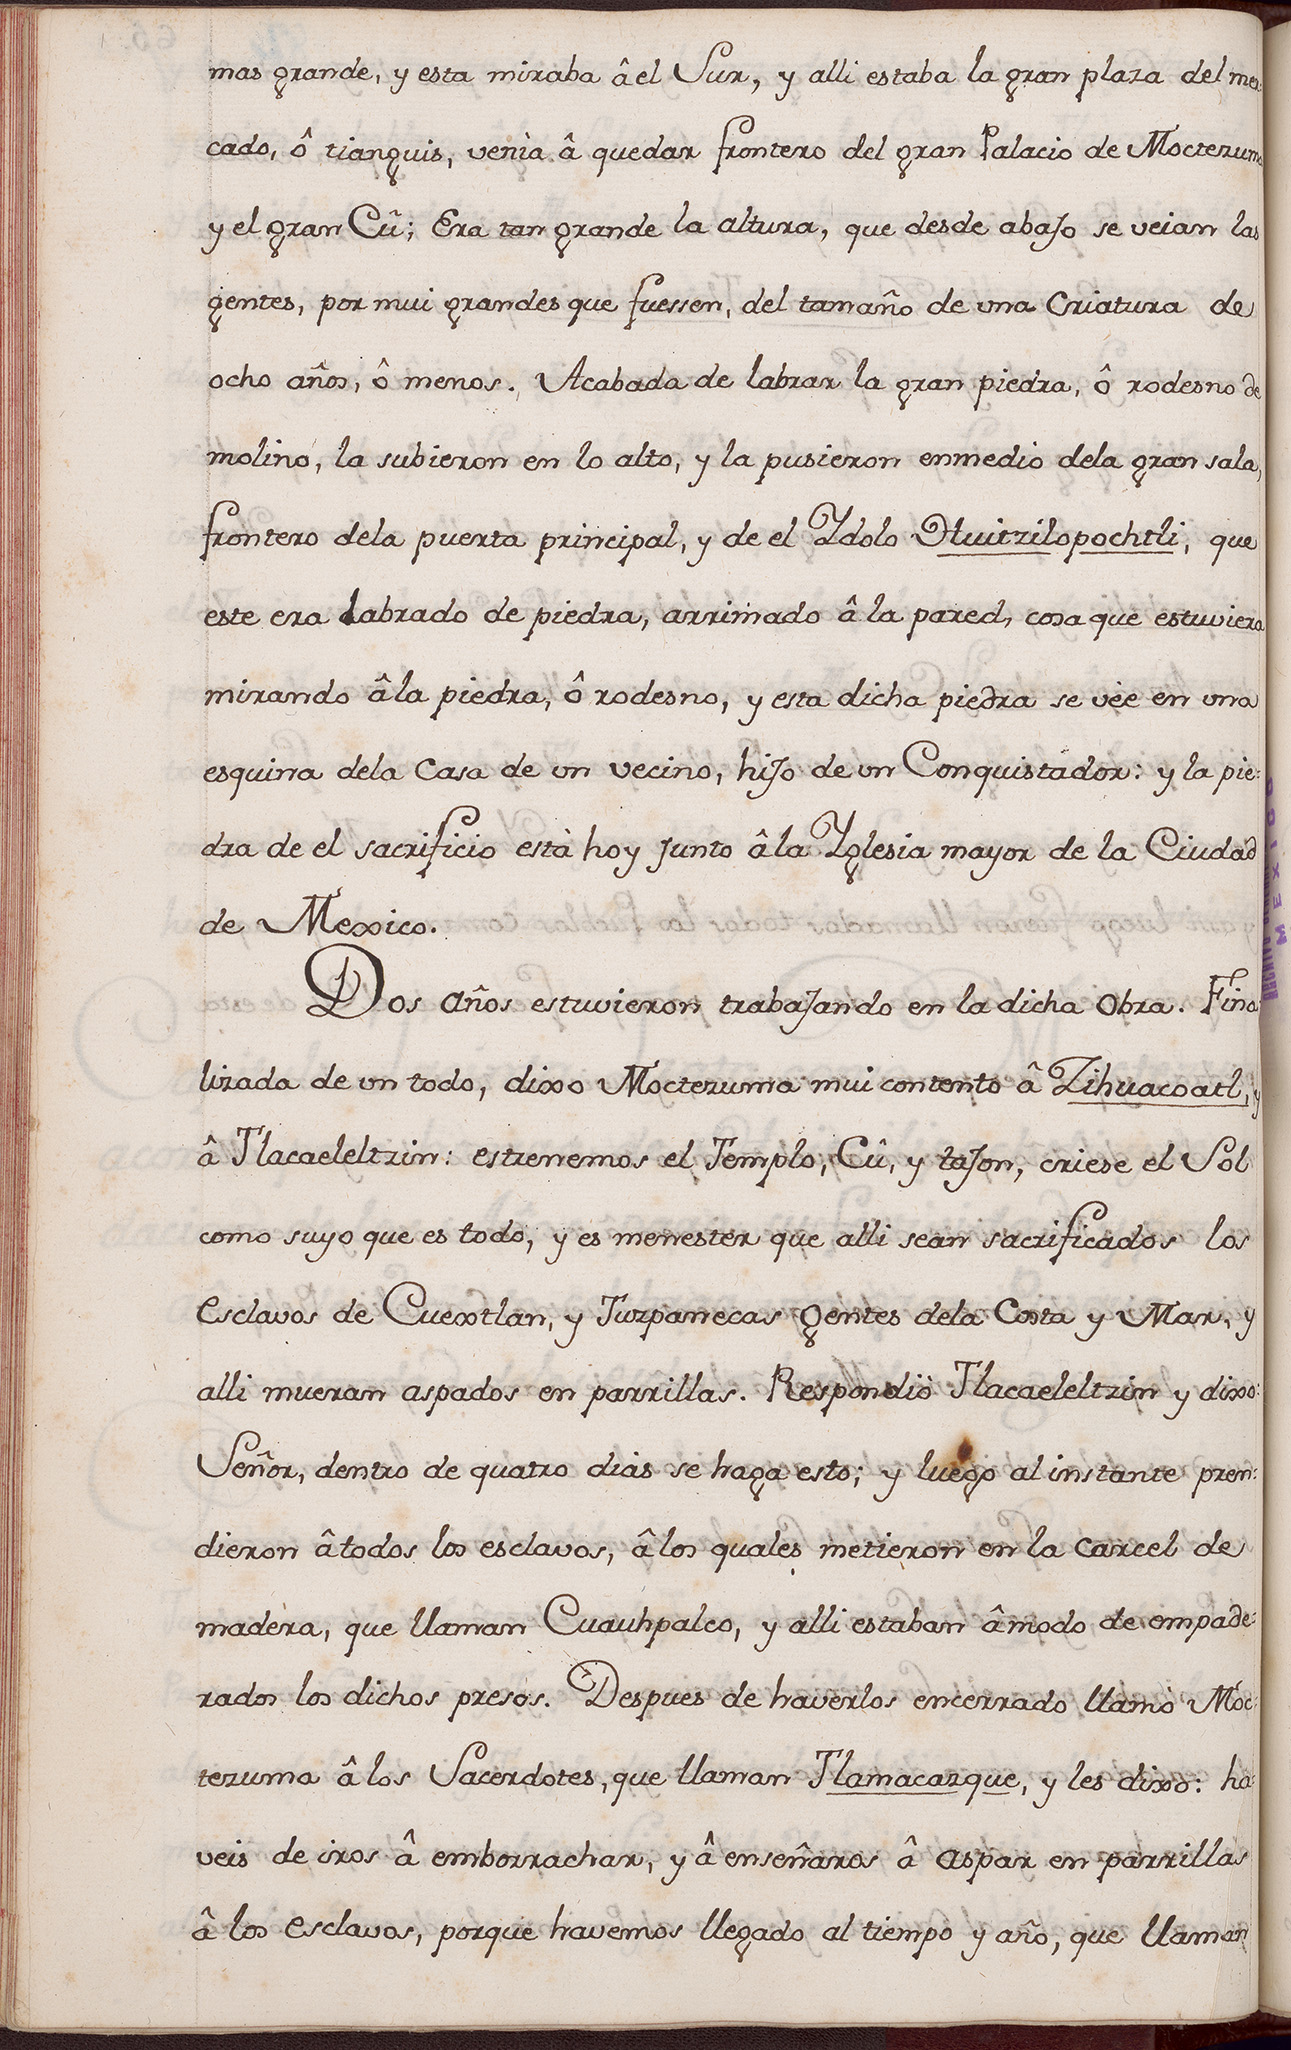 mas grande, y esta miraba â el Sur, y alli estaba la gran plaza del mer:
cado, ô tianguis, venìa â quedar frontero del gran Palacio de Moctezuma
y el gran Cû; Era tan grande la altura, que desde abaJo se veian las
gentes, por mui grandes que fuessen, del tamaño de una Criatura de
ocho años, ô menos. Acabada de labrar la gran piedra, ô rodesno de
molino, la subieron en lo alto, y la pusieron enmedio dela gran sala,
frontero dela puerta principal, y de el Ydolo Huitzilopochtli, que
este era labrado de piedra, arrimado â la pared, cosa que estuviera
mirando â la piedra, ô rodesno, y esta dicha piedra se vèe en una
esquina dela Casa de un vecino, hiJo de un Conquistador: y la pie:
dra de el sacrificio està hoy Junto â la Yglesia mayor de la Ciudad
de Mexico.
Dos años estuvieron trabaJando en la dicha Obra. Fina
lizada de un todo, dixo Moctezuma mui contento â Zihuacoatl, y
â Tlacaeleltzin: estrenemos el Templo, Cû, y taJon, criese el Sol
como suyo que es todo, y es menester que alli sean sacrificados los
Esclavos de Cuextlan, y Tuzpanecas gentes dela Costa y Mar, y
alli mueran aspados en parrillas. Respondiò Tlacaeleltzin y dixo:
Señor, dentro de quatro dias se haga esto; y luego al instante pren:
dieron â todos los esclavos, â los quales metieron en la Carcel de
madera, que llaman Cuauhpalco, y alli estaban âmodo de empade:
rados los dichos presos. Despues de haverlos encerrado llamò Moc:
tezuma â los Sacerdotes, que llaman Tlamacazque, y les dixo: ha:
veis de iros â emborrachar, y â enseñaros â aspar en parrillas
â los Esclavos, porque havemos llegado al tiempo y año, que llaman